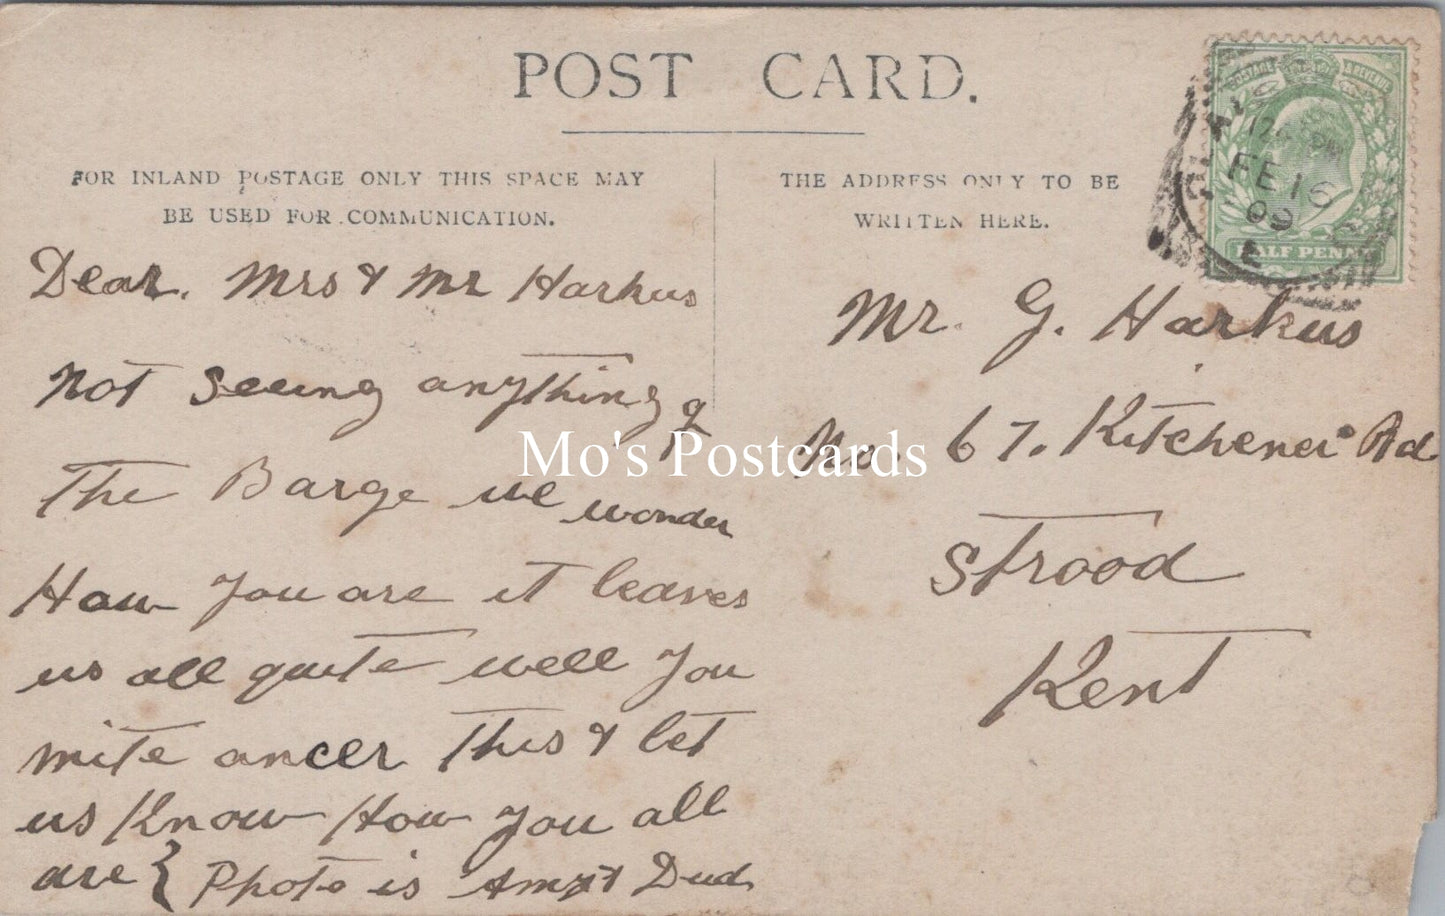 POST CARD.
FOR INLAND POSTAGE ONLY THIS SPACE MAY
BE USED FOR COMMUNICATION.
THE ADDRESS ONLY TO BE
WRITTEN HERE.
POSTAGE & REVENUE
FE 16
09
HALF PENNY
Dear. Mrs & Mr Harkus
not seeing anything of
The Barge we wonder
How you are it leaves
us all quite well you
mite ancer This & let
us Know How you all
are } Photo is & Dud
Mr. G. Harkus
No. 67. Kitchener Rd
Strood
Kent
Mo's Postcards